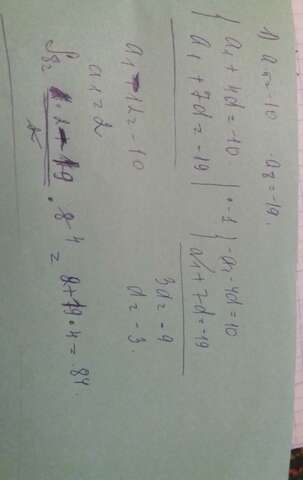 1) a₅=-10 a₈=-19.
{ a₁+4d=-10 | ·-1 { -a₁-4d=10
a₁+7d=-19 | a₁+7d=-19
3d=-9
d=-3.
a₁-12=-10
a₁=2
S₈= 2-19 / 2 · 8⁴ = 2+19·4=84.